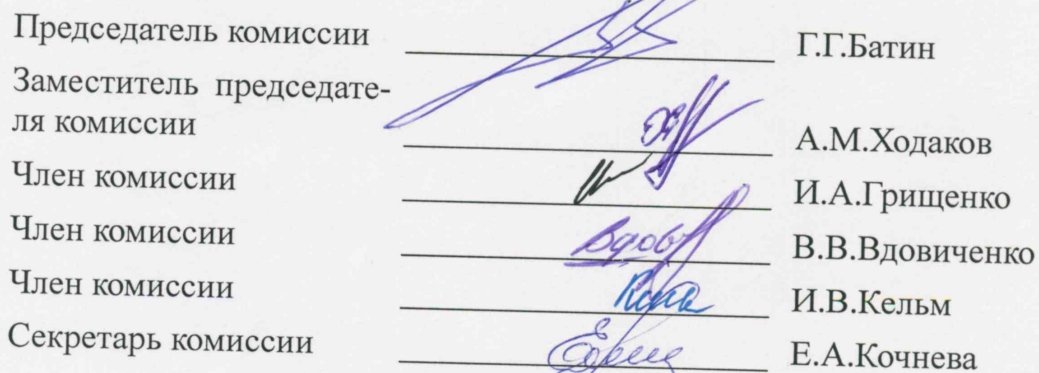 Председатель комиссии Г.Г.Батин
Заместитель председате-
ля комиссии А.М.Ходаков
Член комиссии И.А.Грищенко
Член комиссии В.В.Вдовиченко
Член комиссии И.В.Кельм
Секретарь комиссии Е.А.Кочнева